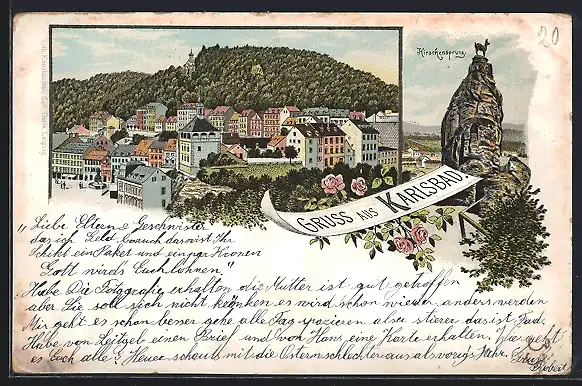 Hirschensprung.
20
GRUSS AUS KARLSBAD.
„Liebe Eltern & Geschwister
das ich Geld brauch das wist Ihr
Schikt ein Paket und ein par Kronen
Gott wirds Euch lohnen."
Habe Die Fotografhy erhalten die Mutter ist gut getroffen
aber Sie soll sich nicht kränken es wird schon wieder anders werden
Mir geht es schon besser gehe alle Tag spazieren aber das ist Fad.
Habe von einen Brief und von Hans eine Karte erhalten. Wie geht
es Euch alle? Heuer schauts mit die Ostern schlechter aus als vorigs Jahr.
Robert